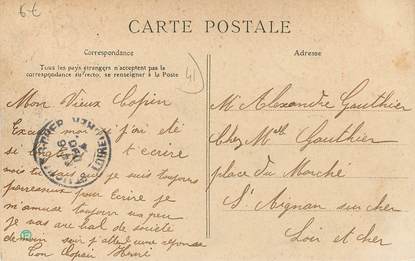 6€
CARTE POSTALE
Correspondance
Adresse
Tous les pays étrangers n'acceptent pas la
correspondance au recto, se renseigner à la Poste
41
Mon Vieux Copin
Excuse moi si j'ai été
si t'écrire
mois tu sais que je suis toujours
pareseux pour Ecrire je
m'amuse toujour un peu
je vas au bal de société
demain soir j'attend une réponse
Ton Copain Henri
Mr Alexandre Gauthier
Chez Mme Gauthier
place du Marché
St Aignan sur cher
Loir et cher